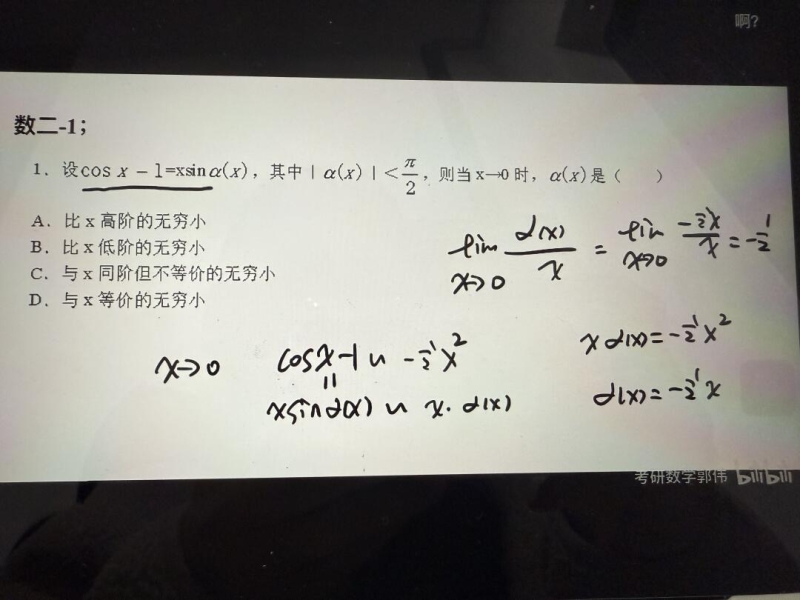 啊?
数二-1;
1. 设cos x-1=xsinα(x), 其中|α(x)|<π/2, 则当x→0时, α(x)是( )
A. 比x高阶的无穷小
B. 比x低阶的无穷小
C. 与x同阶但不等价的无穷小
D. 与x等价的无穷小
lim x→0 α(x)/x = lim x→0 -½x/x = -½
x→0 cosx-1 ~ -½x²
=
xsinα(x) ~ x·α(x)
xα(x)=-½x²
α(x)=-½x
考研数学郭伟 bilibili